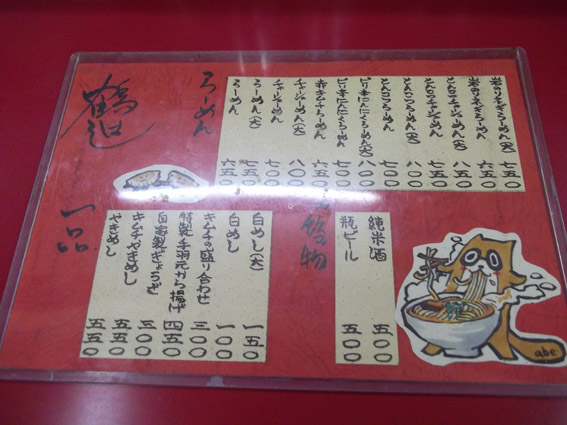 らーめん
らーめん 六五〇
らーめん(大) 七五〇
チャーシューめん 七〇〇
チャーシューめん(大) 八〇〇
赤キムチらーめん 六五〇
ピリ辛にんにくらーめん 七〇〇
ピリ辛にんにくらーめん(大) 八〇〇
とんこつらーめん 七〇〇
とんこつらーめん(大) 八〇〇
とんこつチャーシューめん 七五〇
とんこつチャーシューめん(大) 八五〇
岩のりネギらーめん 六五〇
岩のりネギらーめん(大) 七五〇
飲み物
純米酒 五〇〇
瓶ビール 五〇〇
一品
白めし(大) 一五〇
白めし 一〇〇
キムチの盛り合わせ 三〇〇
特製手羽元から揚げ 四五〇
自家製ぎょうざ 三〇〇
キムチやきめし 五五〇
やきめし 五五〇
abe